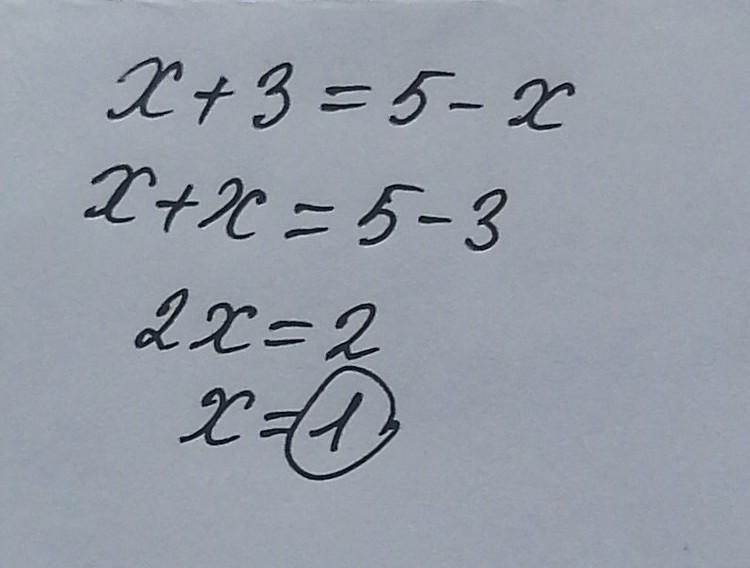 x + 3 = 5 - x
x + x = 5 - 3
2x = 2
x = 1